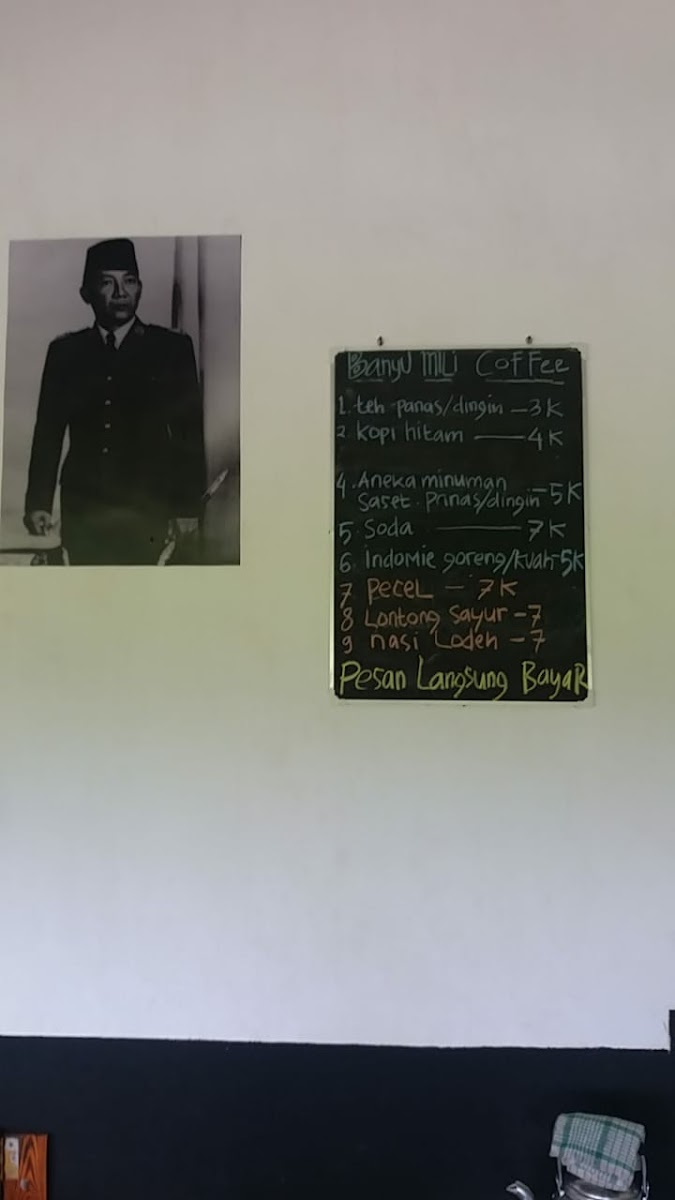 Banyu Mili Coffee
1. teh panas/dingin – 3K
2. Kopi hitam — 4K
4. Aneka minuman
Saset. Panas/dingin – 5K
5. Soda — 7K
6. indomie goreng/kuah – 5K
7 Pecel – 7K
8 Lontong Sayur – 7
9 nasi Lodeh – 7
Pesan Langsung Bayar